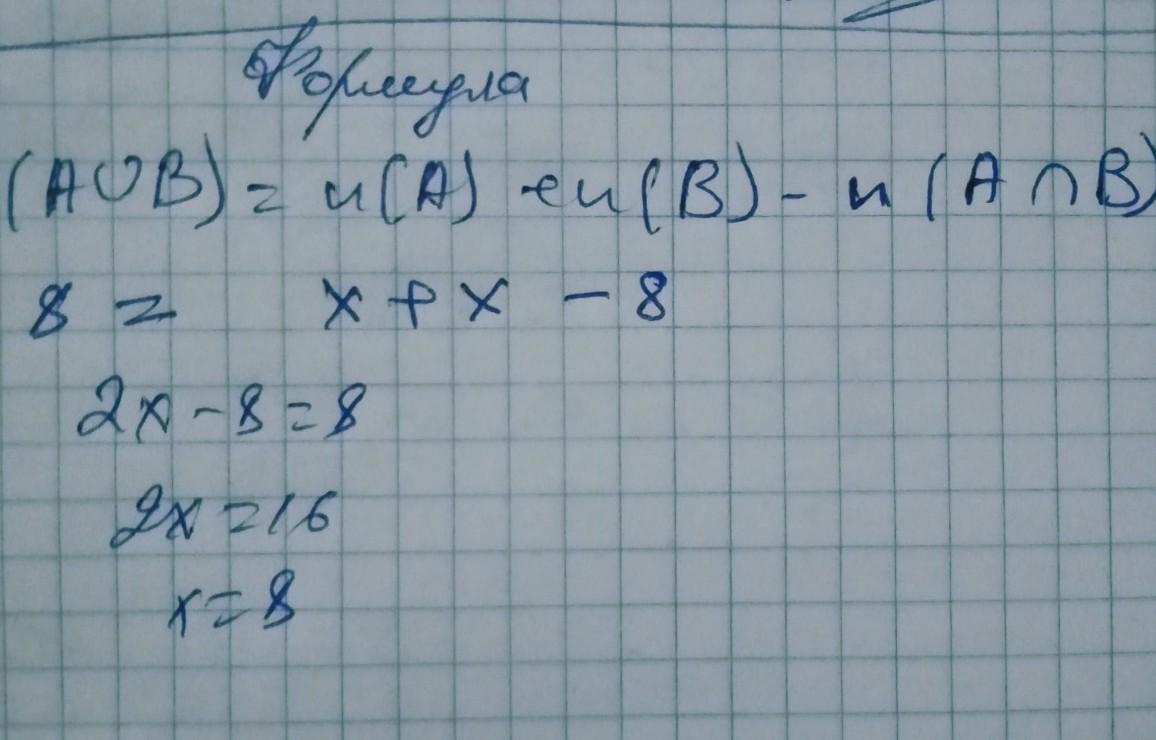 Формула
(A∪B) = n(A) + n(B) - n(A∩B)
8 = x + x - 8
2x - 8 = 8
2x = 16
x = 8